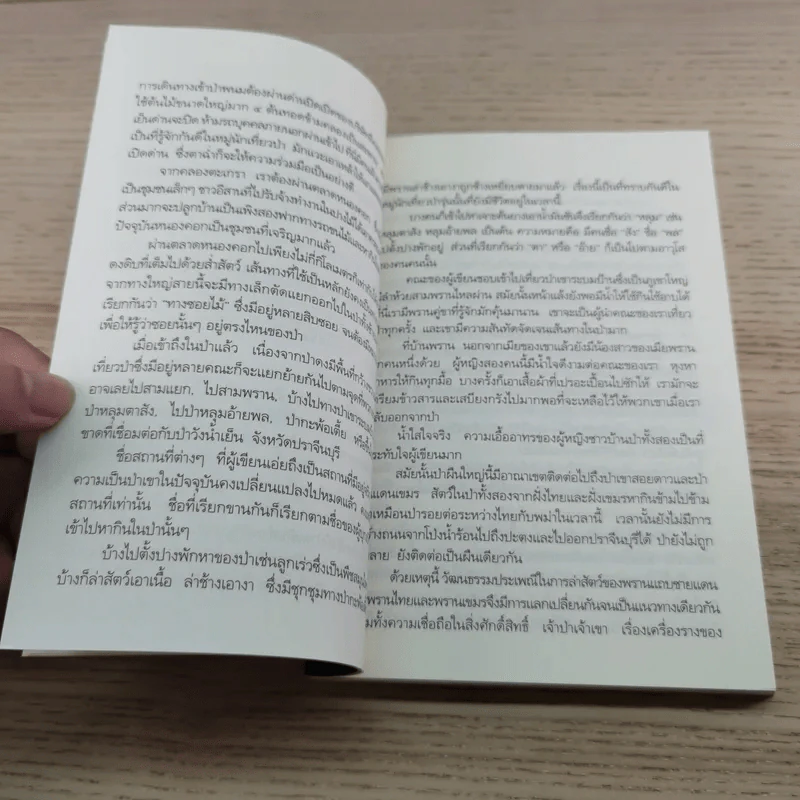 การเดินทางเข้าป่าพนมต้องผ่านด่านปิดเปิดของบริษัท
ใช้ต้นไม้ขนาดใหญ่มาก ๔ ต้นทอดข้ามคลองเป็น
เย็นด่านจะปิด ห้ามรถบุคคลภายนอกผ่านเข้าไป
เป็นที่รู้จักกันดีในหมู่นักเที่ยวป่า มักแวะเอาเหล้า
เปิดด่าน ซึ่งตาฉ่ำก็จะให้ความร่วมมือเป็นอย่างดี
จากคลองตะเกรา เราต้องผ่านตลาดหนองคอก
เป็นชุมชนเล็กๆ ชาวอีสานที่ไปรับจ้างทำงานในปางไม้
ส่วนมากจะปลูกบ้านเป็นเพิงสองฟากทางรถชนไม้
ปัจจุบันหนองคอกเป็นชุมชนที่เจริญมากแล้ว
ผ่านตลาดหนองคอกไปเพียงไม่กี่กิโลเมตร
ดงดิบที่เต็มไปด้วยส่ำสัตว์ เส้นทางที่ใช้เป็นหลักยังคง
จากทางใหญ่สายนี้จะมีทางเล็กตัดแยกออกไปในป่า
เรียกกันว่า "ทางซอยไม้" ซึ่งมีอยู่หลายสิบซอย จนต้อง
เพื่อให้รู้ว่าซอยนั้นๆ อยู่ตรงไหนของป่า
เมื่อเข้าถึงในป่าแล้ว เนื่องจากป่าดงมีพื้นที่
เที่ยวป่าซึ่งมีอยู่หลายคณะก็จะแยกย้ายกันไปตามจุด
อาจเลยไปสามแยก, ไปสามพราน, บ้างไปทางป่าเขา
ป่าหลุมตาสัง, ไปป่าหลุมอ้ายพล, ป่ากะพ้อเตี้ย
ชาดที่เชื่อมต่อกับป่าวังน้ำเย็น จังหวัดปราจีนบุรี
ชื่อสถานที่ต่างๆ ที่ผู้เขียนเอ่ยถึงเป็นสถานที่
ความเป็นป่าเขาในปัจจุบันคงเปลี่ยนแปลงไปหมดแล้ว
สถานที่เท่านั้น ชื่อที่เรียกขานกันก็เรียกตามชื่อของ
เข้าไปหากินในป่านั้นๆ
บ้างไปตั้งปางพักหาของป่าเช่นลูกเร่วซึ่งเป็นพืช
บ้างก็ล่าสัตว์เอาเนื้อ ล่าช้างเอางา ซึ่งมีชุกชุมทางป่า
มีพรานล่าช้างเอางาถูกช้างเหยียบตายมาแล้ว เรื่องนี้เป็นที่ทราบกันดีใน
หมู่นักเที่ยวป่ารุ่นนั้นที่ยังมีชีวิตอยู่ในเวลานี้
บางคนก็เข้าไปทำเจาะต้นยางเอาน้ำมันซันซึ่งเรียกกันว่า "หลุม" เช่น
หลุมตาสัง หลุมอ้ายพล เป็นต้น ความหมายคือ มีคนชื่อ "สัง" ชื่อ "พล"
ไปตั้งปางพักอยู่ ส่วนที่เรียกกันว่า "ตา" หรือ "อ้าย" ก็เป็นไปตามอาวุโส
ของคนคนนั้น
คณะของผู้เขียนชอบเข้าไปเที่ยวป่าเขาระบมบ้านซึ่งเป็นภูเขาใหญ่
ลำห้วยสามพรานไหลผ่าน สมัยนั้นหน้าแล้งยังพอมีน้ำให้ใช้กินใช้อาบได้
นี่เรามีพรานคู่ที่รู้จักมักคุ้นมานาน เขาจะเป็นผู้นำคณะของเราเที่ยว
ป่าทุกครั้ง และเขามีความสันทัดจัดเจนเส้นทางในป่ามาก
ที่บ้านพราน นอกจากเมียของเขาแล้วยังมีน้องสาวของเมียพราน
กคนหนึ่งด้วย ผู้หญิงสองคนนี้มีน้ำใจดีงามต่อคณะของเรา หุงหา
าหารให้กินทุกมื้อ บางครั้งก็เอาเสื้อผ้าที่เปรอะเปื้อนไปซักให้ เรามักจะ
รียมข้าวสารและเสบียงกรังไปมากพอที่จะเหลือไว้ให้พวกเขาเมื่อเรา
ลับออกจากป่า
น้ำใสใจจริง ความเอื้ออาทรของผู้หญิงชาวบ้านป่าทั้งสองเป็นที่
ระทับใจผู้เขียนมาก
สมัยนั้นป่าผืนใหญ่นี้มีอาณาเขตติดต่อไปถึงป่าเขาสอยดาวและป่า
แดนเขมร สัตว์ในป่าทั้งสองจากฝั่งไทยและฝั่งเขมรหากินข้ามไปข้าม
เหมือนป่ารอยต่อระหว่างไทยกับพม่าในเวลานี้ เวลานั้นยังไม่มีการ
างถนนจากโป่งน้ำร้อนไปถึงปะตงและไปออกปราจีนบุรีได้ ป่ายังไม่ถูก
ลาย ยังติดต่อเป็นผืนเดียวกัน
ด้วยเหตุนี้ วัฒนธรรมประเพณีในการล่าสัตว์ของพรานแถบชายแดน
พรานไทยและพรานเขมรจึงมีการแลกเปลี่ยนกันจนเป็นแนวทางเดียวกัน
มทั้งความเชื่อถือในสิ่งศักดิ์สิทธิ์ เจ้าป่าเจ้าเขา เรื่องเครื่องรางของ